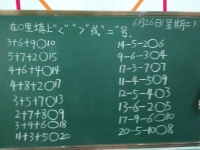 6月26日(星期二)
在○里填上“<”“>”或“=”号.
3+6+9○10
5+7+2○15
4+6+4○14
4+8+2○17
3+5+7○13
2+7+8○9
3+9+6○18
11+3+5○20
14-5-2○6
19-6-6○6
17-3-7○7
11-4-5○9
12-5-4○3
13-6-2○5
17-9-6○10
20-5-10○8